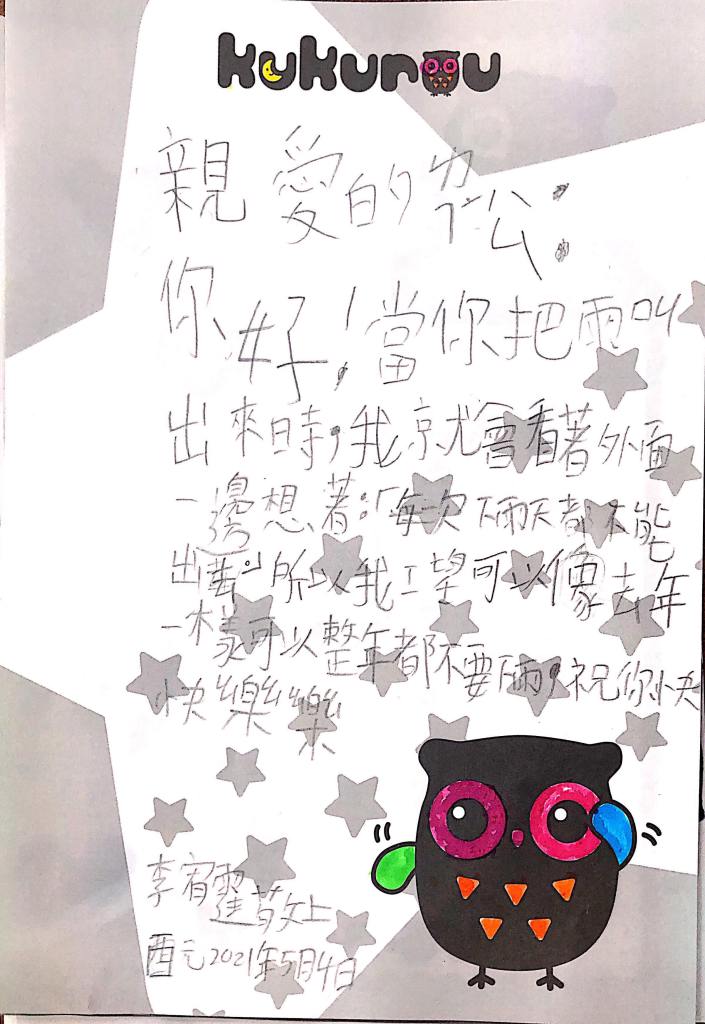 kukurou
親愛的公：
你好！當你把雨叫
出來時，我就會看著外面
一邊想著：「每次下雨天都不能
出。」所以我望可以像去年
一樣可以整年都不要下雨，祝你快
快樂樂
李宥霆敬上
酉元2021年5月4日